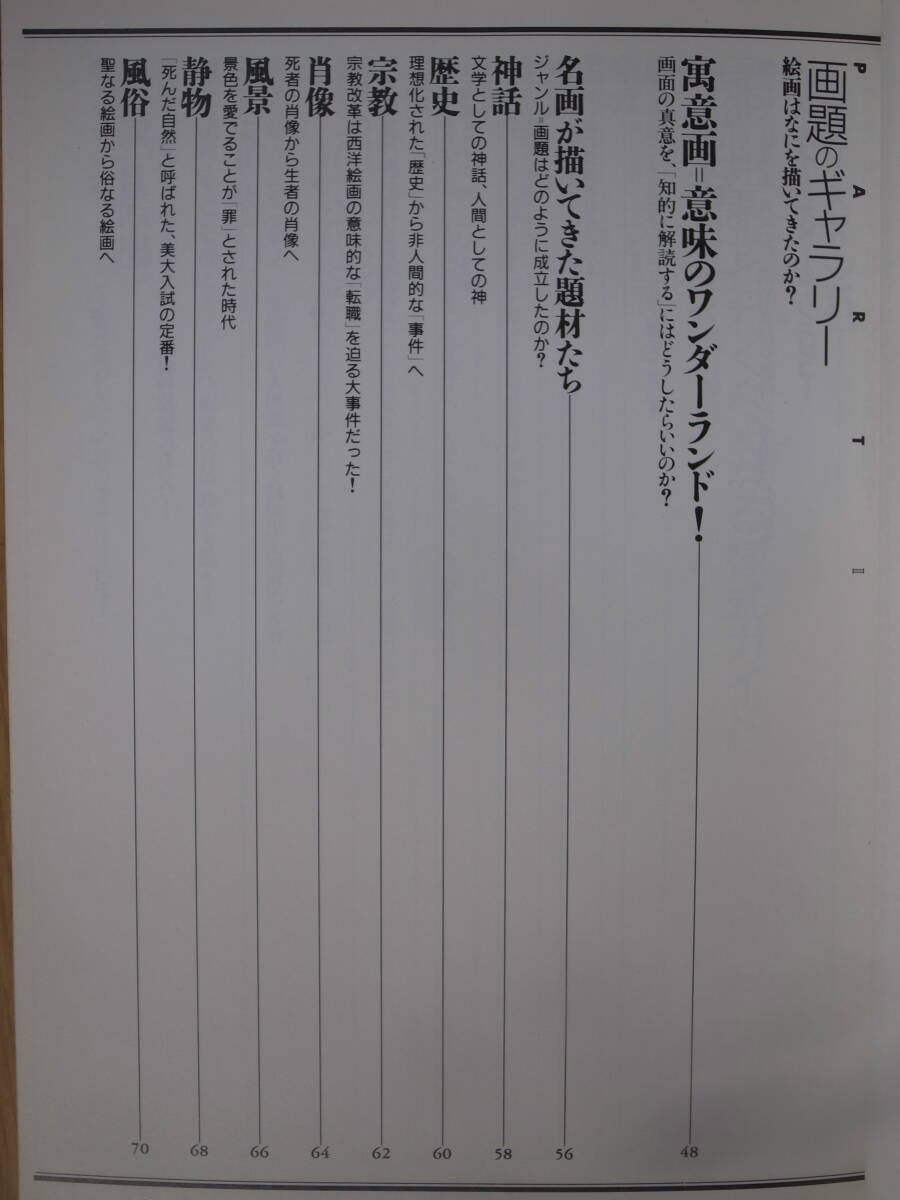 PART II
画題のギャラリー
絵画はなにを描いてきたのか？
寓意画＝意味のワンダーランド！ 48
画面の真意を、「知的に解読する」にはどうしたらいいのか？
名画が描いてきた題材たち 56
ジャンル＝画題はどのように成立したのか？
神話 58
文学としての神話、人間としての神
歴史 60
理想化された「歴史」から非人間的な「事件」へ
宗教 62
宗教改革は西洋絵画の意味的な「転職」を迫る大事件だった！
肖像 64
死者の肖像から生者の肖像へ
風景 66
景色を愛でることが「罪」とされた時代
静物 68
「死んだ自然」と呼ばれた、美大入試の定番！
風俗 70
聖なる絵画から俗なる絵画へ